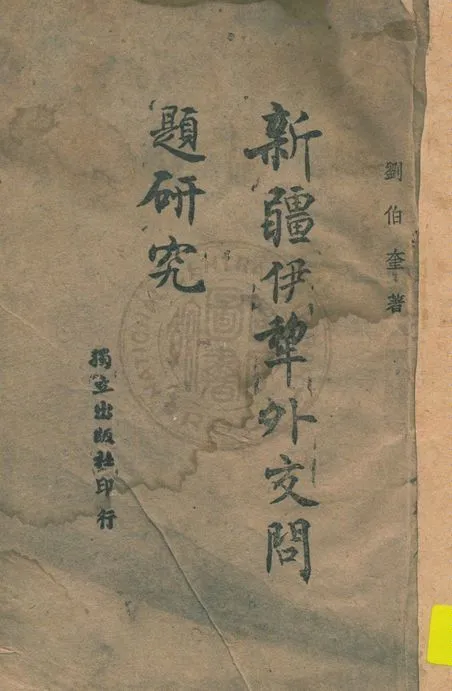 劉伯奎著
新疆伊犂外交問
題研究
獨立出版社印行
圖書